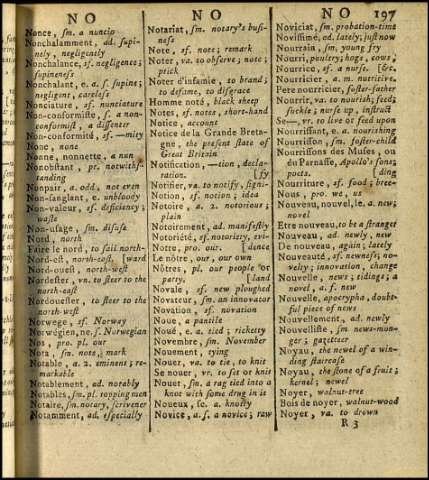 NO NO NO 197
Nonce, sm. a nuncio
Nonchalamment, ad. supi-
nely, negligently
Nonchalance, sf. negligence;
supineness
Nonchalant, e. a. s. supine;
negligent, careless
Nonciature, sf. nunciature
Non-conformiste, s. a non-
conformist, a dissenter
Non-conformité, sf. —mity
None, none
Nonne, nonnette, a nun
Nonobstant, pr. notwith-
standing
Nonpair, a. odd, not even
Non-sanglant, e. unbloody
Non-valeur, sf. deficiency;
waste
Non-usage, sm. disuse
Nord, north
Faire le nord, to sail north-
Nord-est, north-east, [ward
Nord-ouest, north-west
Nordester, vn. to steer to the
north-east
Nordouester, to steer to the
north-west
Norwege, sf. Norway
Norwégien, ne, s. Norwegian
Nos, pro. pl. our
Nota, sm. note, mark
Notable, a. 2. eminent; re-
markable
Notablement, ad. notably
Notables, sm. pl. topping men
Notaire, sm. notary, scrivener
Notamment, ad. especially
Notariat, sm. notary's busi-
ness
Note, sf. note; remark
Noter, va. to observe; note;
prick
Noter d'infamie, to brand;
to defame, to disgrace
Homme noté, black sheep
Notes, sf. notes, short-hand
Notice, account
Notice de la Grande Breta-
gne, the present state of
Great Britain
Notification, —tion, decla-
ration. [fy
Notifier, va. to notify, signi-
Notion, sf. notion; idea
Notoire, a. 2. notorieus;
plain
Notoirement, ad. manifestly
Notoriété, sf. notoriety, evi-
Notre, pro. [dence
Le nôtre, our, our own
Nôtres, pl. our people or
party. [land
Novale, sf. new ploughed
Novateur, sm. an innovator
Novation, sf. novation
Noue, a pantile
Noué, e. a. tied; ricketty
Novembre, sm. November
Nouement, tying
Nouer, va. to tie, to knit
Se nouer, vr. to set or knit
Nouet, sm. a rag tied into a
knot with some drug in it
Noueux, se. a. knotty
Novice, a. s. a novice; raw
Noviciat, sm. probation-time
Novissimé, ad. lately; just now
Nourrain, sm. young fry
Nourri, poultry; hogs, cows;
Nourrice, sf. a nurse. [&c.
Nourricier, e. a. m. nutritive.
Pere nourricier, foster-father
Nourrir, va. to nourish; feed;
suckle; nurse up, instruct
Se—, vr. to live or feed upon
Nourrissant, e. a. nourishing
Nourrisson, sm. foster-child
Nourrissons des Muses, ou
du Parnasse, Apollo's sons;
poets. [ding
Nourriture, sf. food; bree-
Nous, pro. we, us
Nouveau, nouvel, le. a. new;
novel
Etre nouveau, to be a stranger
Nouveau, ad. newly, new
De nouveau, again; lately
Nouveauté, sf. newness; no-
velty; innovation, change
Nouvelle, news; tidings; a
novel, a. f. new
Nouvelle, apocrypha, doubt-
ful piece of news
Nouvellement, ad. newly
Nouvelliste, sm. news-mon-
ger; gazetteer
Noyau, the newel of a win-
ding staircase
Noyau, the stone of a fruit;
kernel; newel
Noyer, walnut-tree
Bois de noyer, walnut-wood
Noyer, va. to drown
R 3